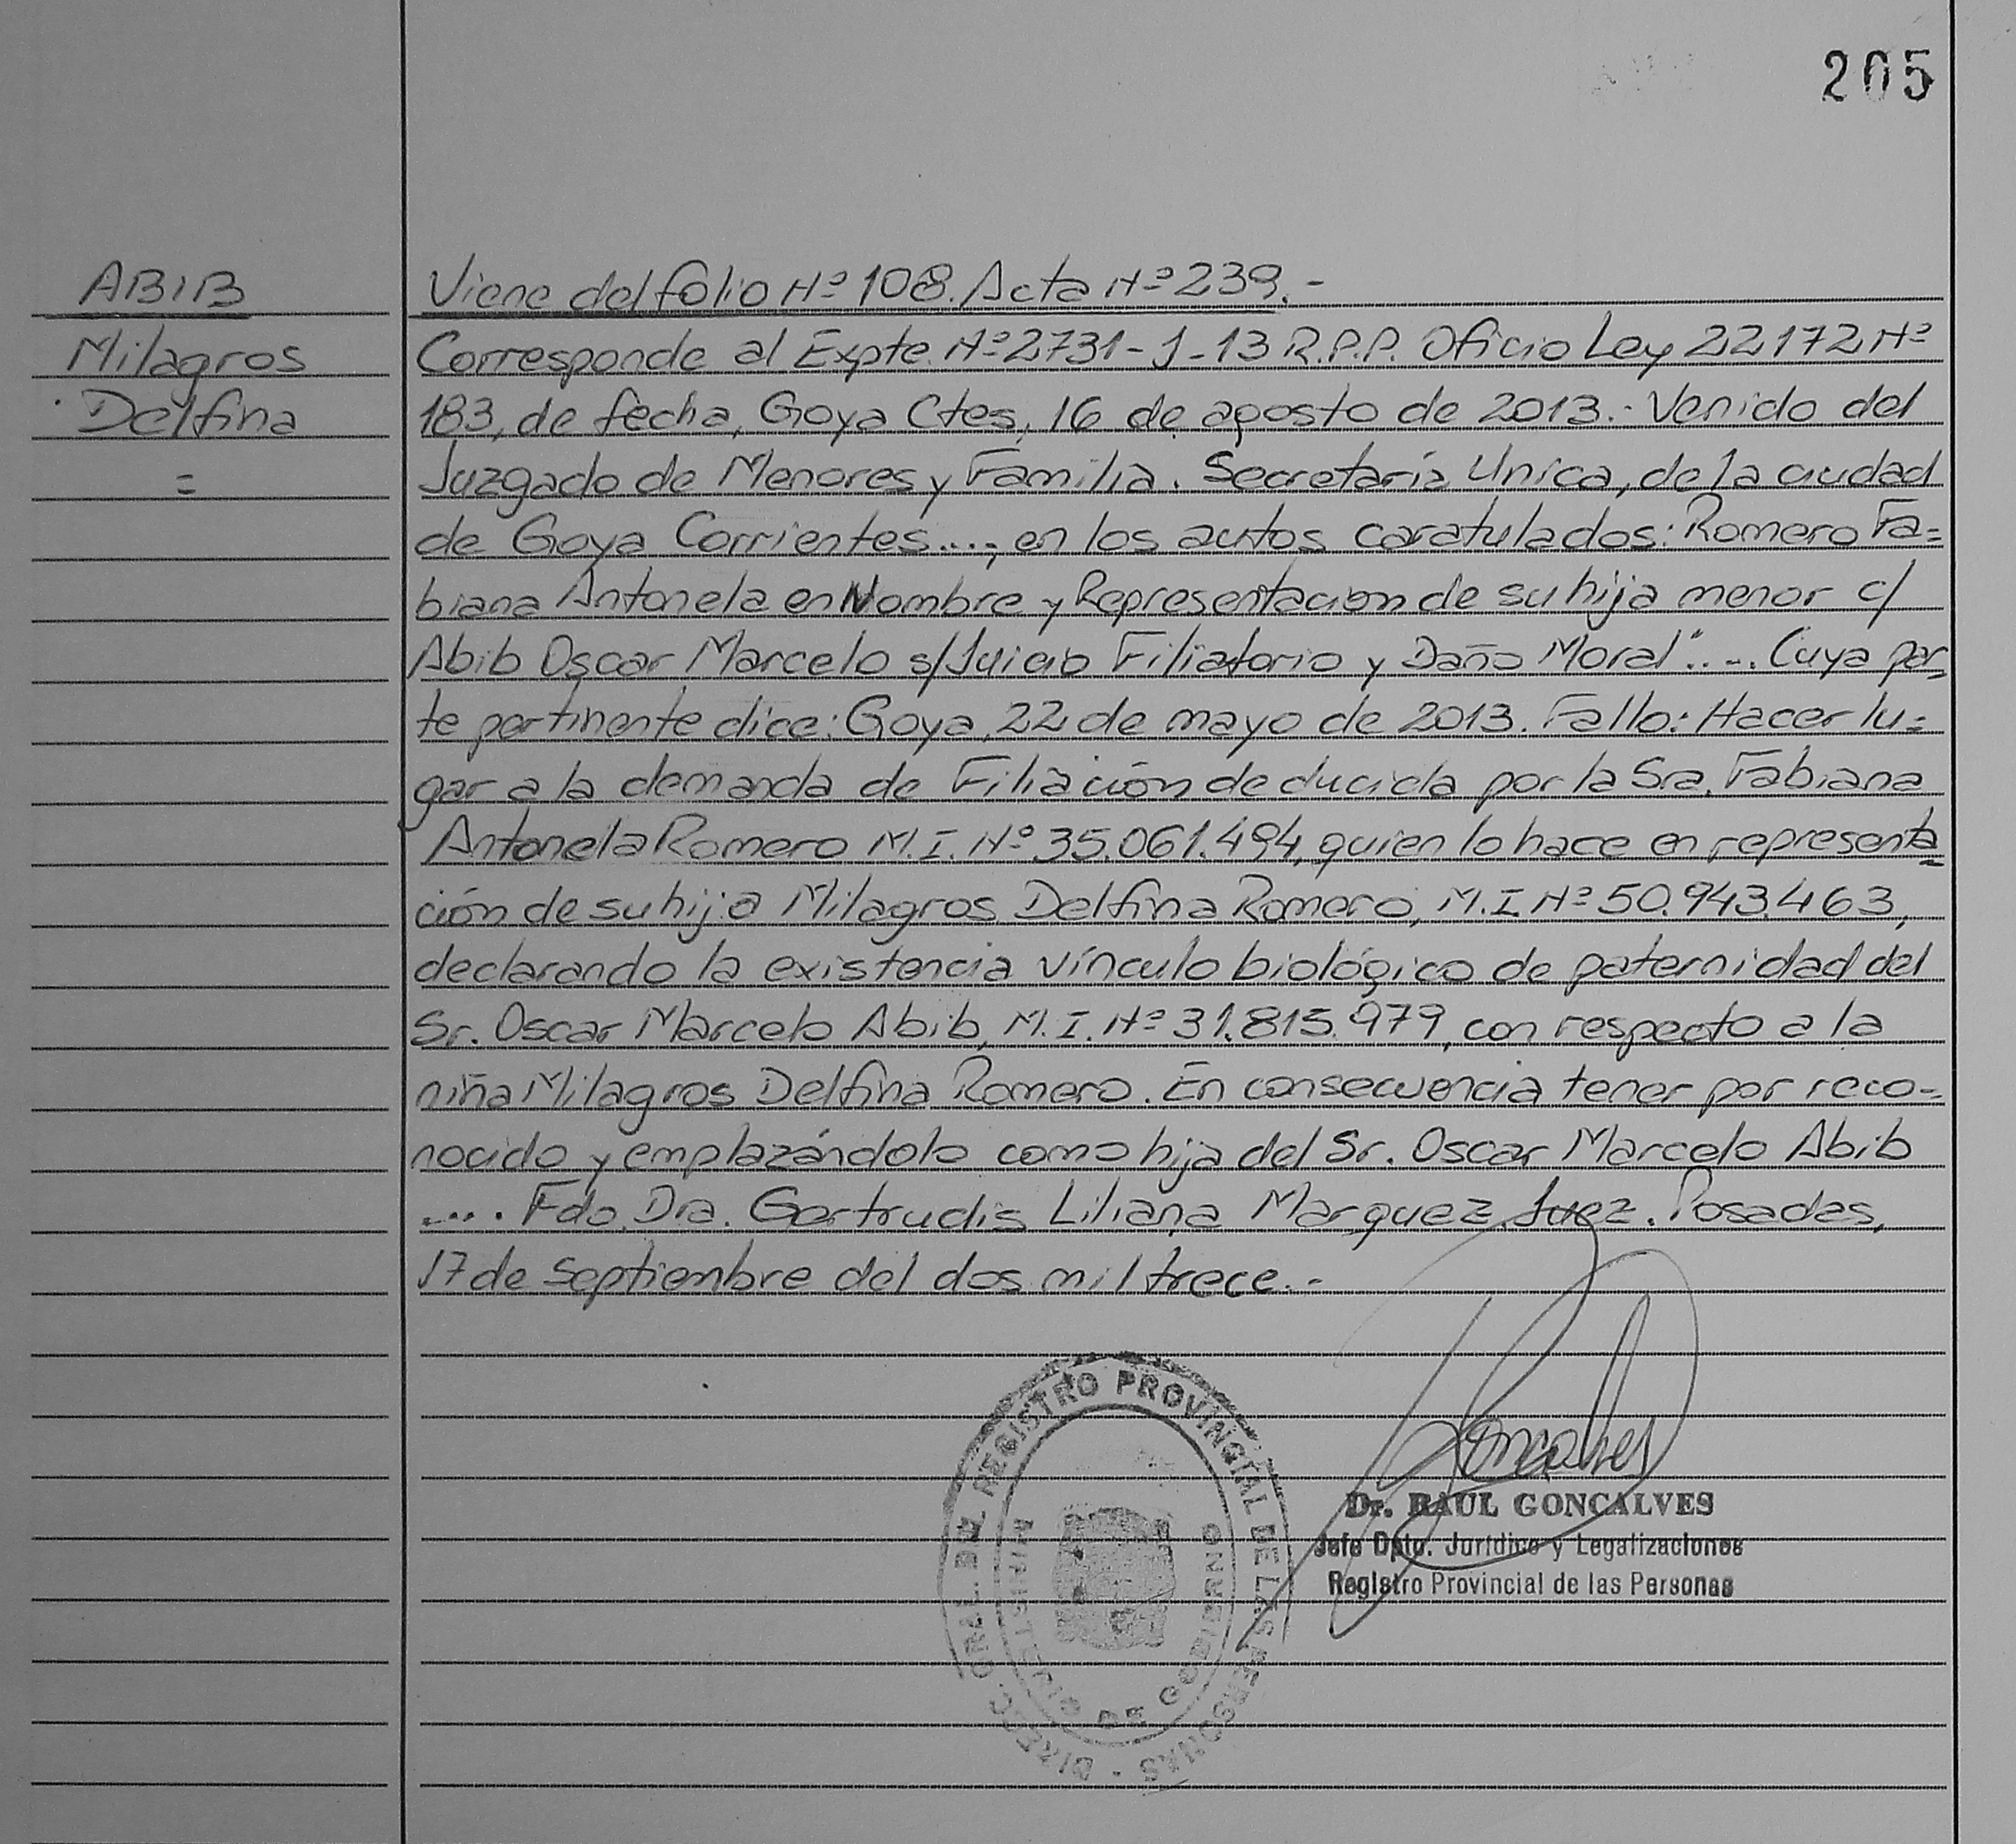 205
ABIB
Milagros
Delfina
=
Viene del folio Nº 108. Acta Nº 239.-
Corresponde al Expte. Nº 2731-J-13 R.P.P. Oficio Ley 22172 Nº
183, de fecha, Goya Ctes, 16 de agosto de 2013.- Venido del
Juzgado de Menores y Familia. Secretaría Unica, de la ciudad
de Goya Corrientes...., en los autos caratulados: Romero Fa=
biana Antonela en Nombre y Representacion de su hija menor c/
Abib Oscar Marcelo s/Juicio Filiatorio y Daño Moral".... Cuya par=
te pertinente dice: Goya, 22 de mayo de 2013. Fallo: Hacer lu=
gar a la demanda de Filiación deducida por la Sra. Fabiana
Antonela Romero M.I. Nº 35.061.494, quien lo hace en representa=
ción de su hija Milagros Delfina Romero, M.I. Nº 50.943.463,
declarando la existencia vínculo biológico de paternidad del
Sr. Oscar Marcelo Abib, M.I. Nº 31.815.979, con respecto a la
niña Milagros Delfina Romero. En consecuencia tener por reco=
nocido y emplazándolo como hija del Sr. Oscar Marcelo Abib
.... Fdo. Dra. Gertrudis Liliana Marquez Juez. Posadas,
17 de septiembre del dos mil trece.-
DIRECC. GRAL. DEL REGISTRO PROVINCIAL DE LAS PERSONAS -
MINISTERIO DE GOBIERNO
Goncalves
Dr. RAUL GONCALVES
Jefe Dpto. Jurídico y Legalizaciones
Registro Provincial de las Personas